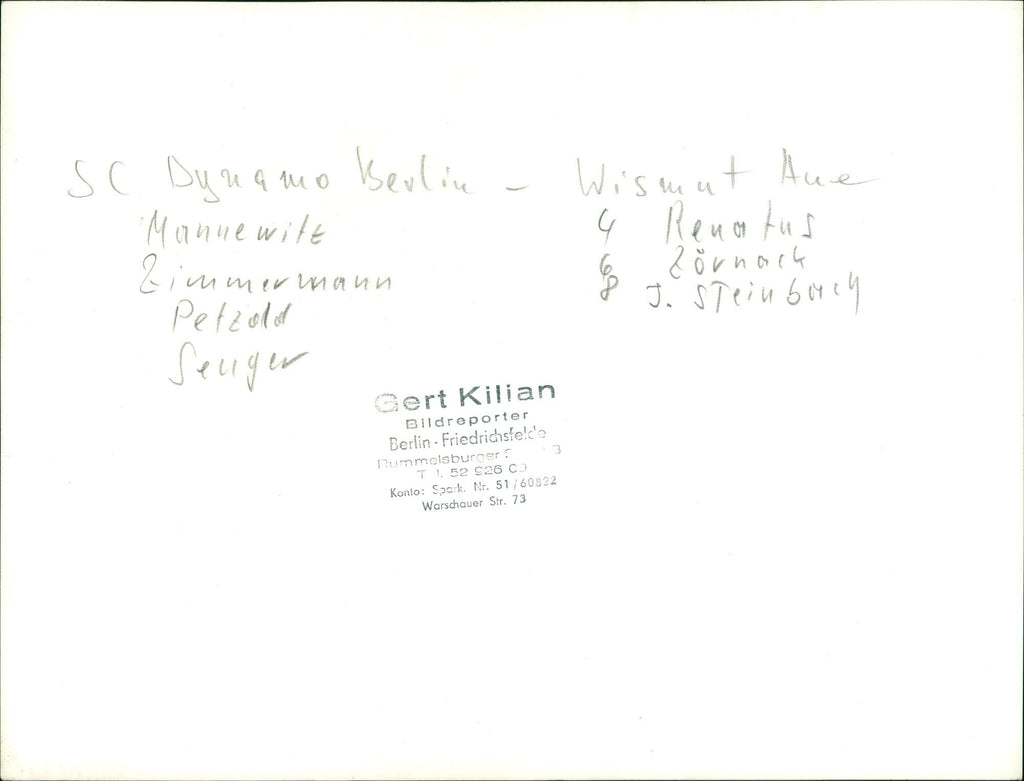 SC Dynamo Berlin - Wismut Aue
Mannewitz
Zimmermann
Petzold
Senger
4 Renatus
6 Zörnack
8 J. Steinbach
Gert Kilian
Bildreporter
Berlin - Friedrichsfelde
Rummelsburger
52 926
Konto: Spark. Nr. 51/60822
Warschauer Str. 73